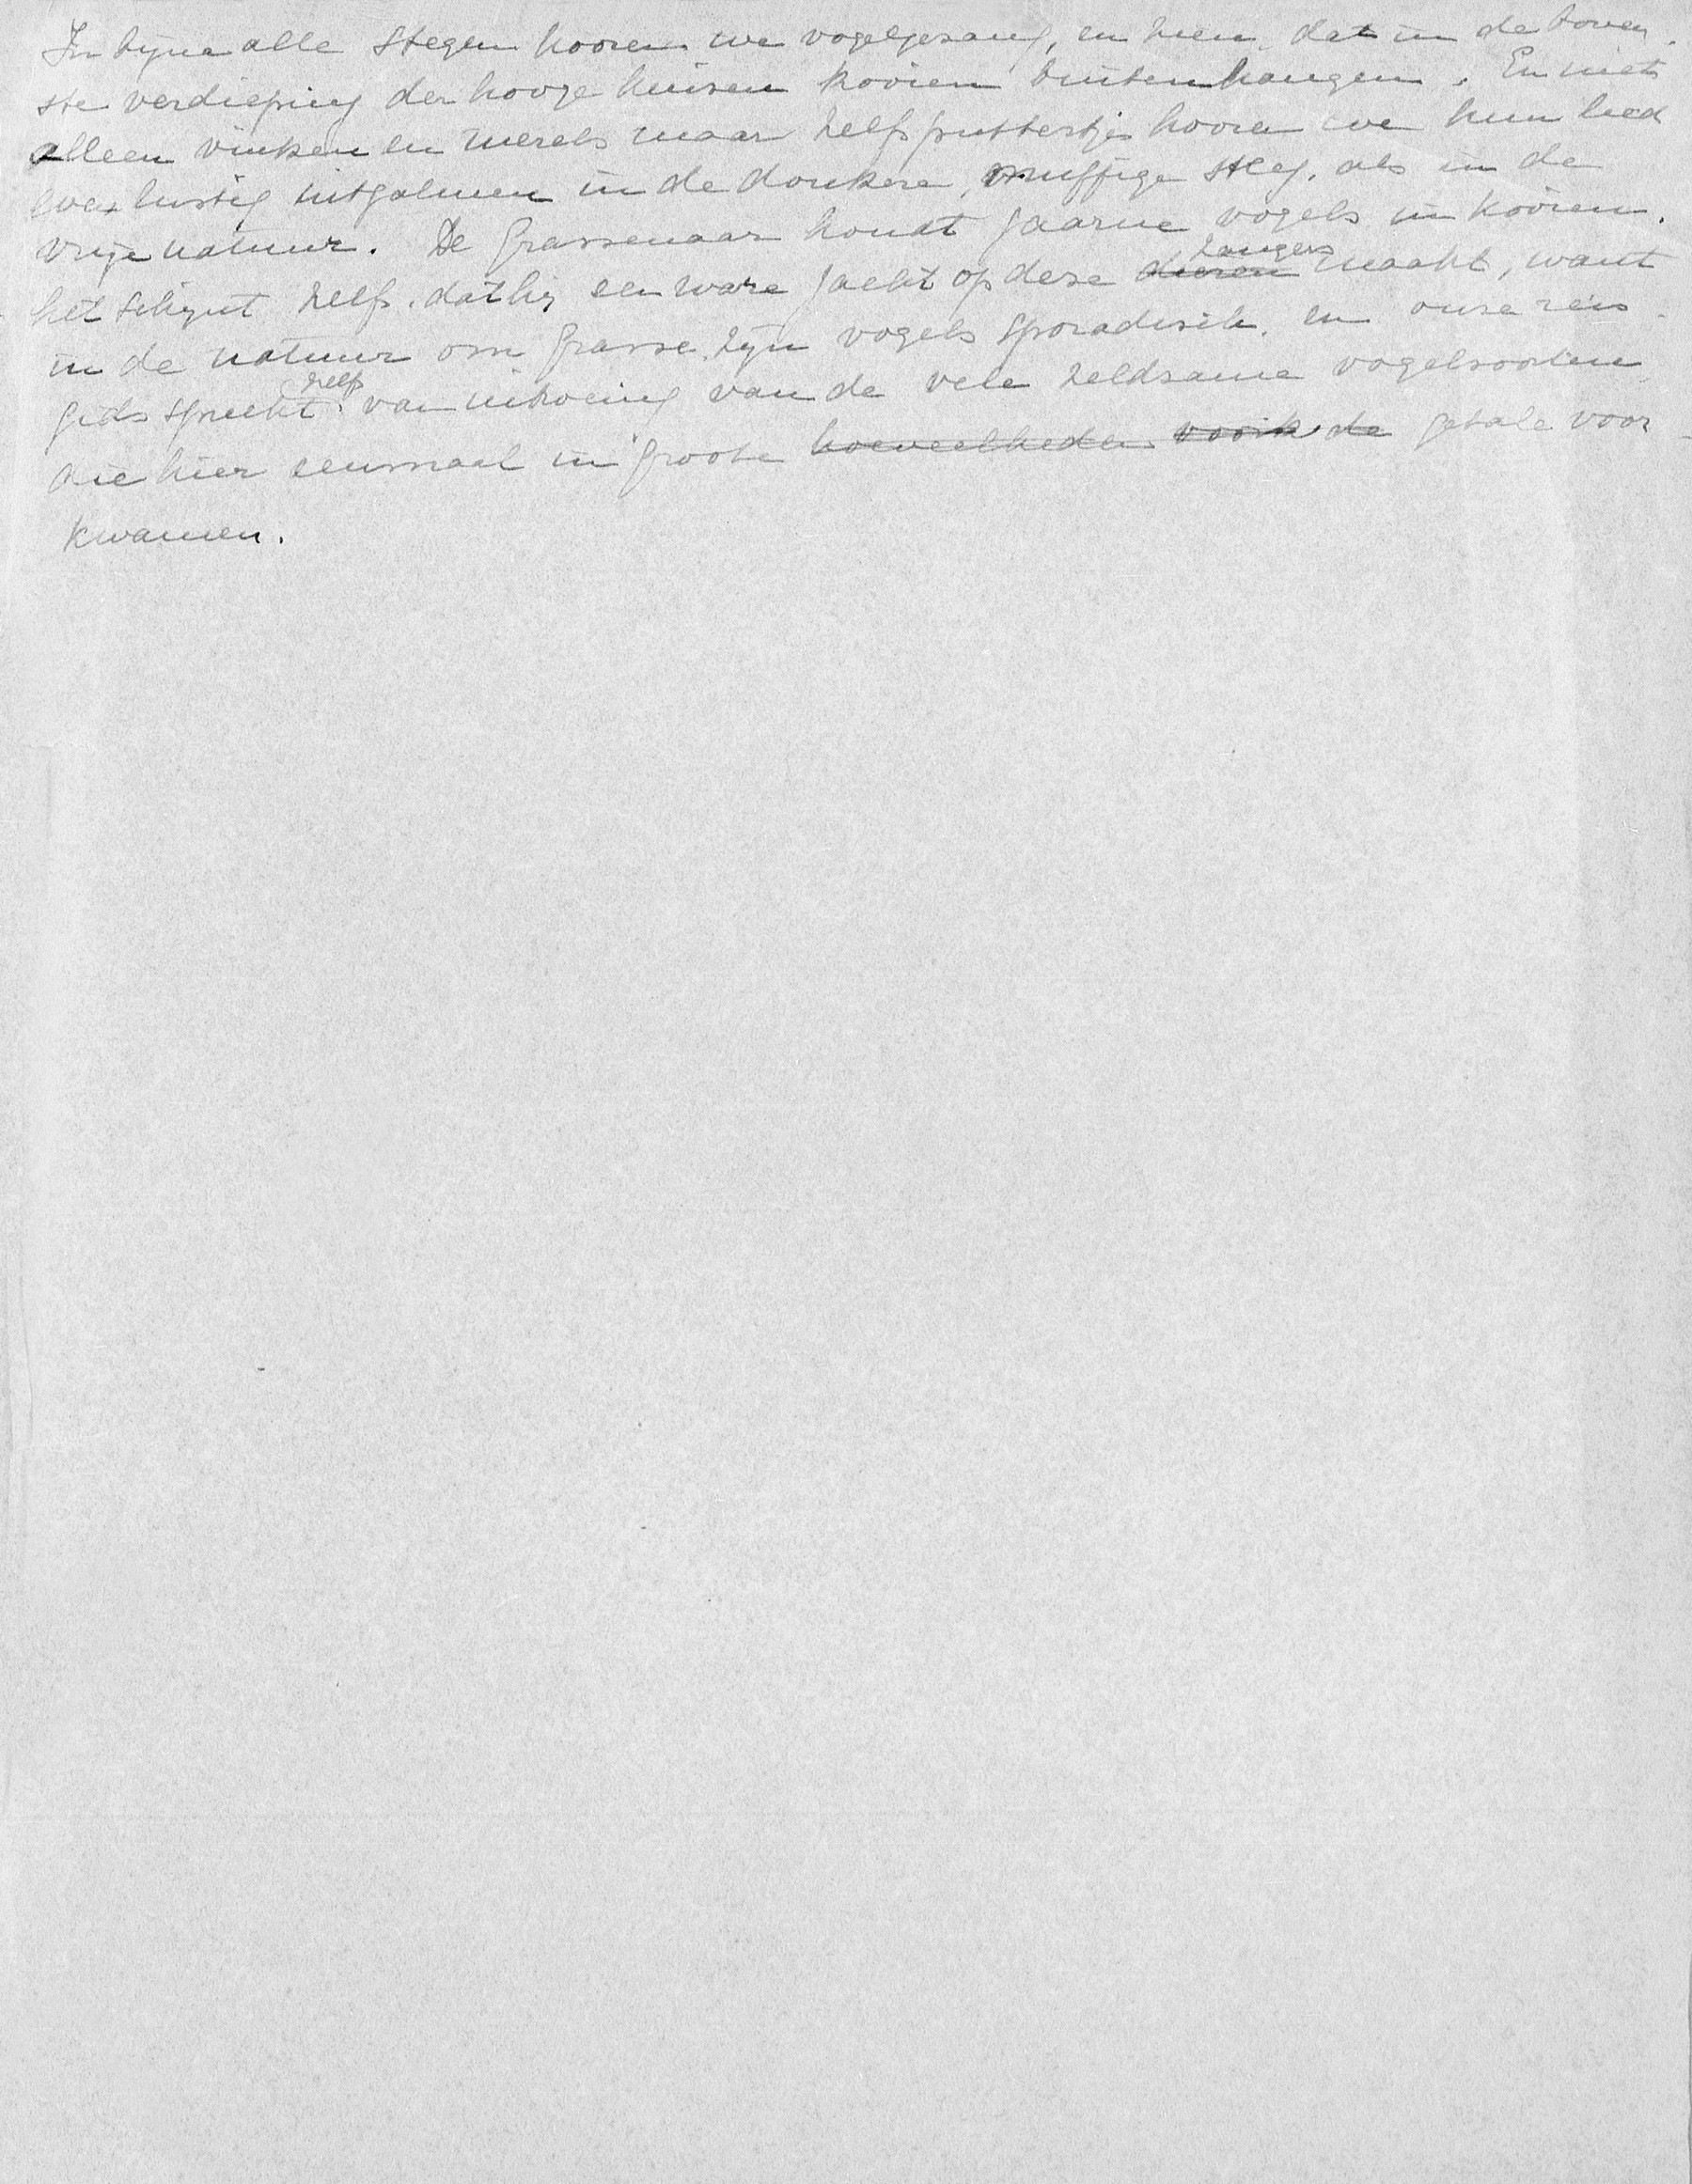 In bijna alle stegen hooren we vogelgezang, en zien, dat in de boven-
ste verdieping der hooge huizen kooien buitenhangen. En niet
alleen vinken en merels maar zelfs puttertjes hooren we hun lied
even lustig uitgalmen in de donkere, muffige steeg, als in de
vrije natuur. De Grassenaar houdt gaarne vogels in kooien.
het schijnt zelfs, dat hij een ware jacht op deze dieren zangers maakt, want
in de natuur om Grasse zijn vogels sporadisch, en onze reis-
gids spreekt zelfs van uitroeiing van de vele zeldzame vogelsoorten,
die hier eenmaal in groote hoeveelheden voork de getale voor-
kwamen.